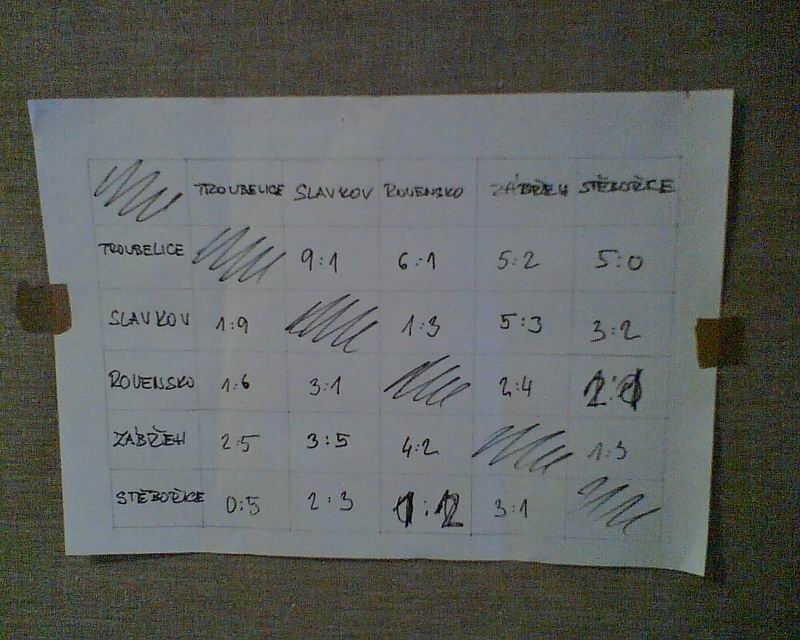 TROUBELICE SLAVKOV ROVENSKO ZÁBŘEH STĚBOŘICE
TROUBELICE 9:1 6:1 5:2 5:0
SLAVKOV 1:9 1:3 5:3 3:2
ROVENSKO 1:6 3:1 2:4
ZÁBŘEH 2:5 3:5 4:2 1:3
STĚBOŘICE 0:5 2:3 3:1